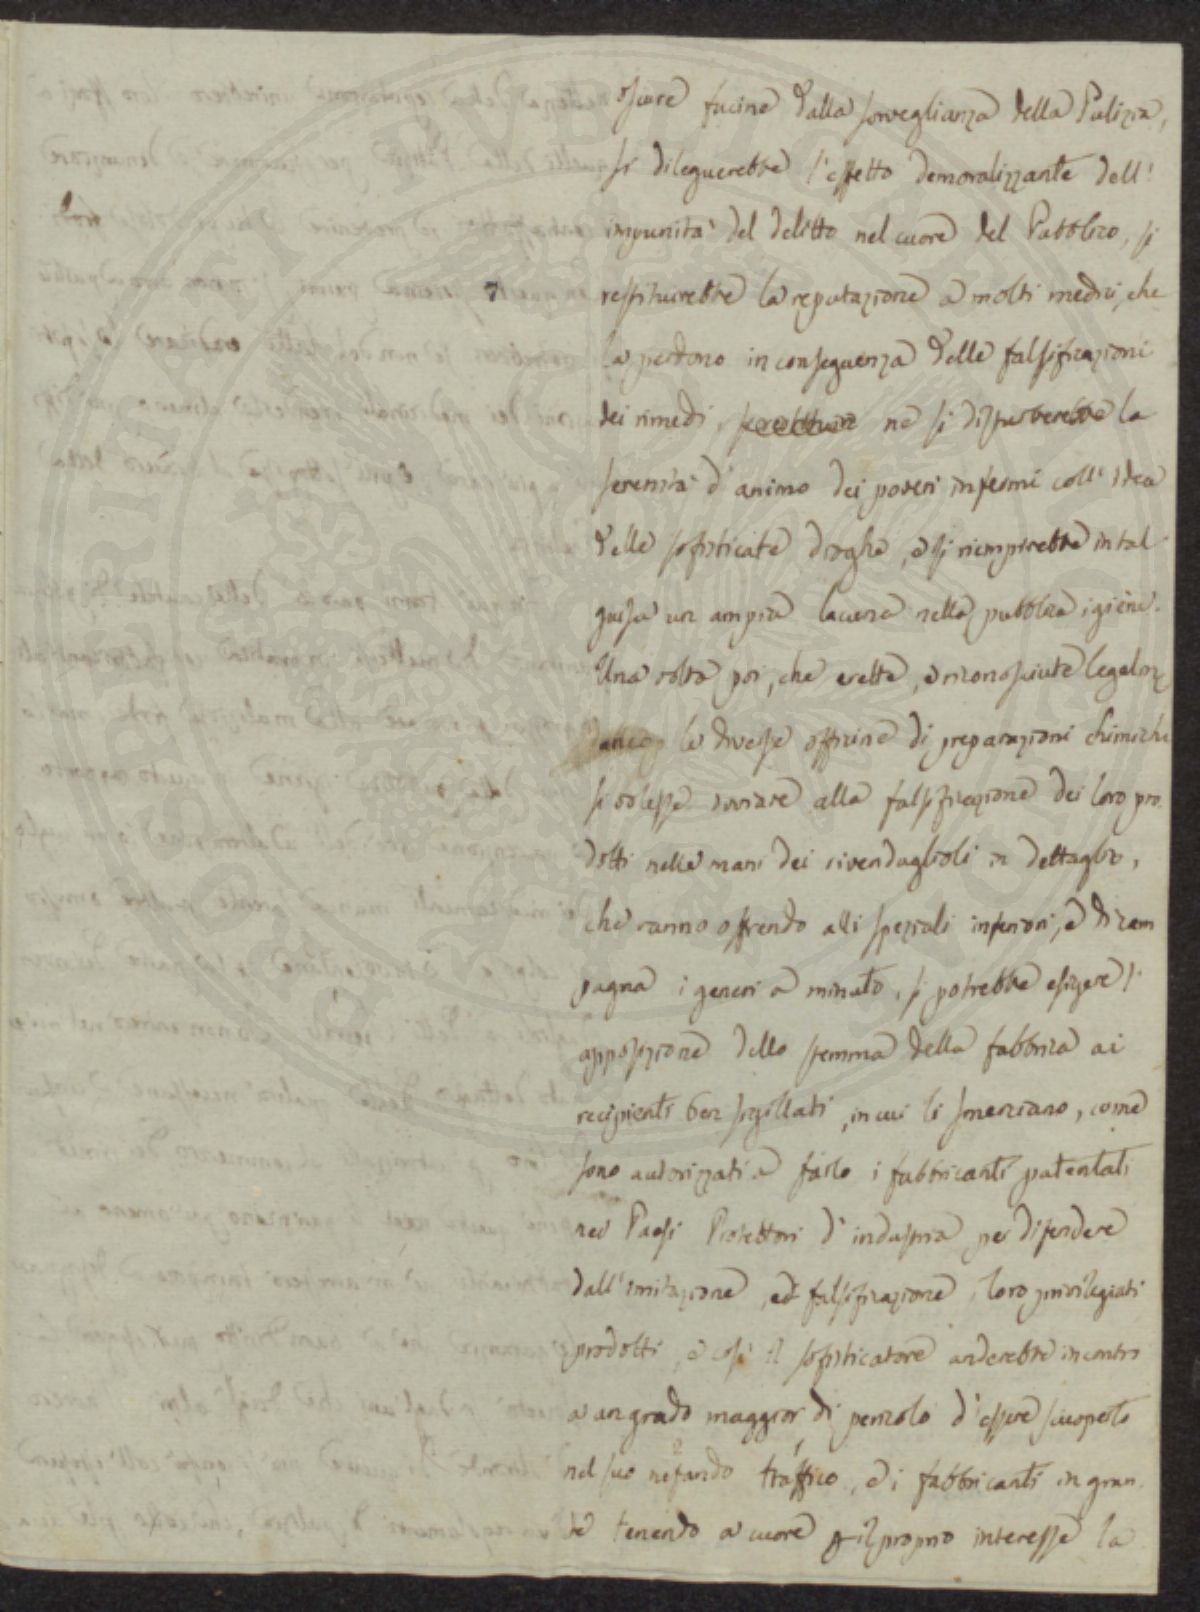 oscure fucine dalla sorveglianza della Pulizia,
si dileguerebbe l'effetto demoralizzante dell'
impunità del delitto nel cuore del Pubblico, si
restituirebbe la reputazione a molti medici, che
la perdono in conseguenza delle falsificazioni
dei rimedi, ne si disturberebbe la
serenità d'animo dei poveri infermi coll'idea
delle sofisticate droghe, e si riempirebbe in tal
guisa un ampia lacuna nella pubblica igiene.
Una volta poi, che erette, e riconosciute
le diverse officine di preparazioni chimiche
si volesse ovviare alla falsificazione dei loro pro
dotti nelle mani dei rivendaglioli in dettaglio,
che vanno offrendo alli speziali inferiori, e di cam
pagna i generi a minuto, si potrebbe esigere l'
apposizione dello stemma della fabbrica ai
recipienti ben sigillati, in cui li smerciano, come
sono autorizzati a farlo i fabbricanti patentati
nei Paesi Protettori d'industria per difendere
dall'imitazione, ed falsificazione, loro privilegiati
prodotti, e così il sofisticatore anderebbe incontro
a un grado maggior di pericolo d'essere scuoperto
nel suo nefando traffico, e i fabbricanti in gran
de tenendo a cuore il proprio interesse la